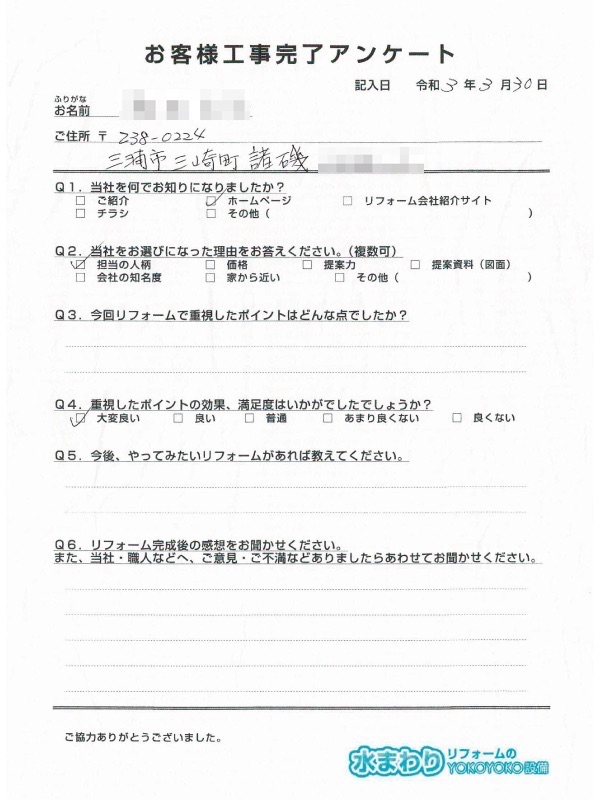 お客様工事完了アンケート
記入日 令和3年3月30日
ふりがな
お名前
ご住所 〒 238-0224
三浦市三崎町諸磯
Q1．当社を何でお知りになりましたか？
□ ご紹介 ☑ ホームページ □ リフォーム会社紹介サイト
□ チラシ □ その他（ ）
Q2．当社をお選びになった理由をお答えください。（複数可）
☑ 担当の人柄 □ 価格 □ 提案力 □ 提案資料（図面）
□ 会社の知名度 □ 家から近い □ その他（ ）
Q3．今回リフォームで重視したポイントはどんな点でしたか？
Q4．重視したポイントの効果、満足度はいかがでしたでしょうか？
☑ 大変良い □ 良い □ 普通 □ あまり良くない □ 良くない
Q5．今後、やってみたいリフォームがあれば教えてください。
Q6．リフォーム完成後の感想をお聞かせください。
また、当社・職人などへ、ご意見・ご不満などありましたらあわせてお聞かせください。
ご協力ありがとうございました。
水まわりリフォームの
YOKOYOKO設備